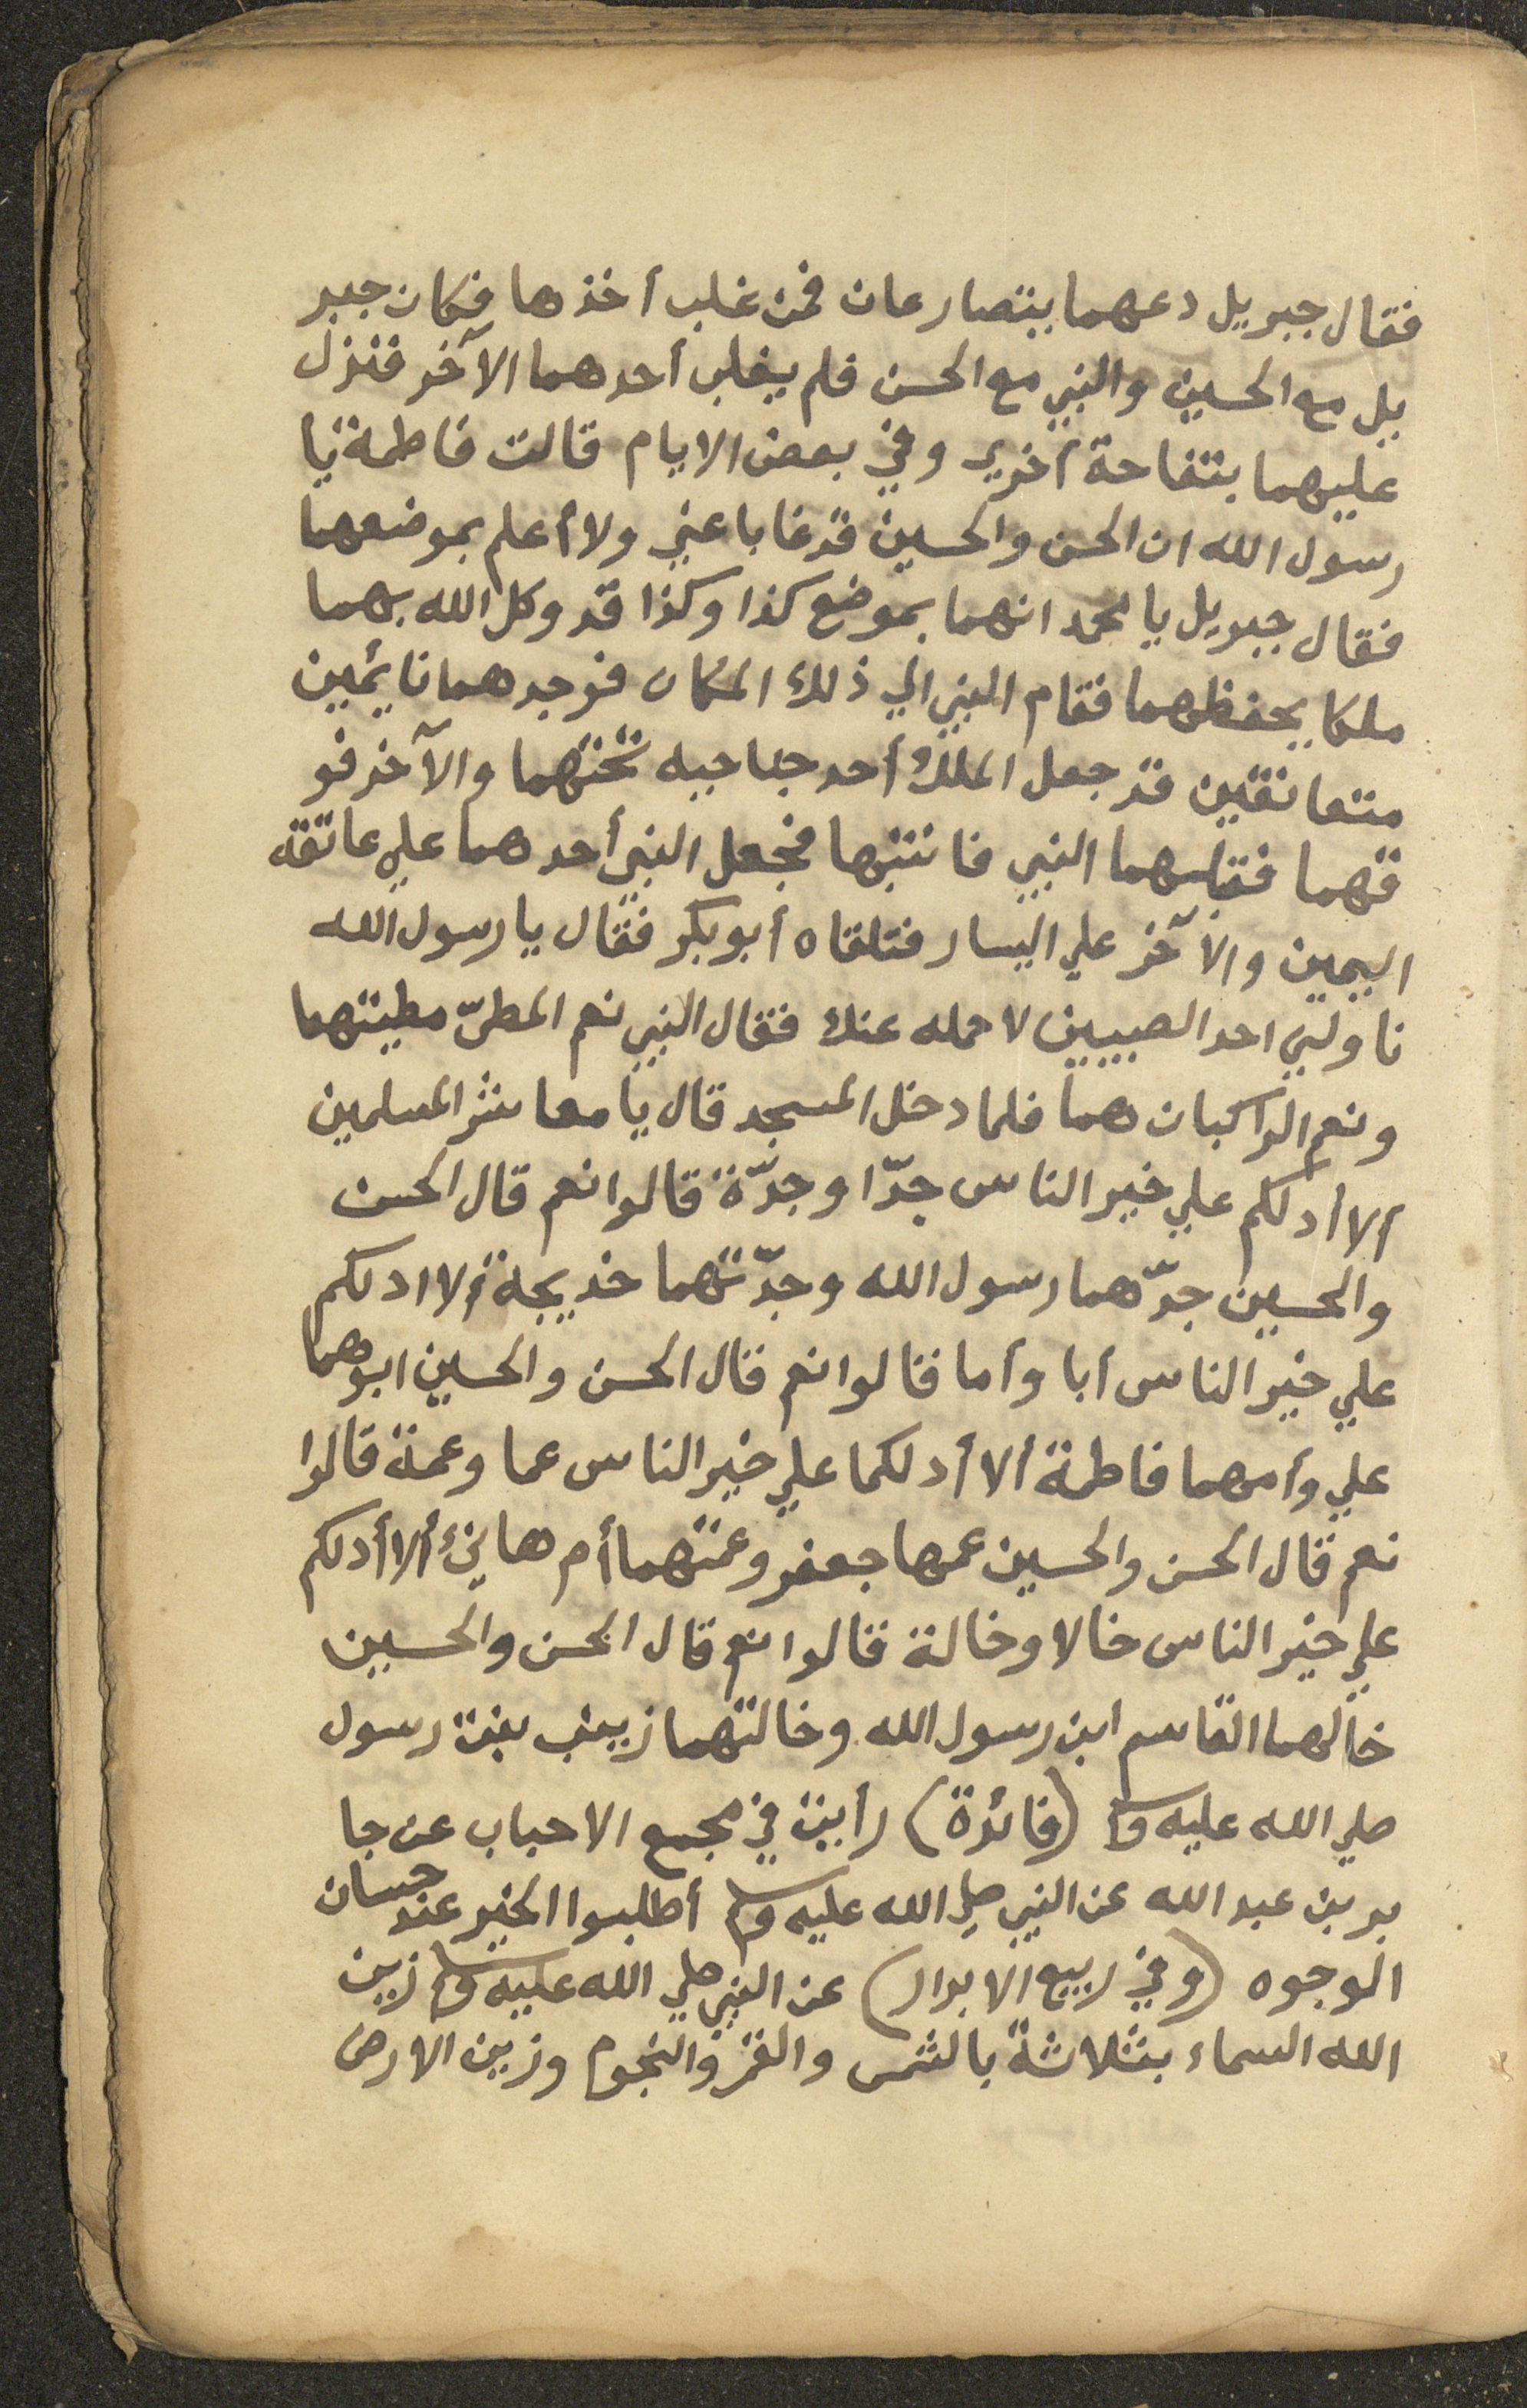 فقال جبريل دعهما يتصارعان فمن غلب أخذها فكان جبر
يل مع الحسين والنبي مع الحسن فلم يغلب أحدهما الآخر فنزل
عليهما بتفاحة أخري وفي بعض الايام قالت فاطمة يا
رسول الله ان الحسن والحسين قد غابا عني ولا أعلم بموضعهما
فقال جبريل يا محمد انهما بموضع كذا وكذا قد وكل الله بهما
ملكا يحفظهما فقام النبي الي ذلك المكان فوجدهما نائمين
متعانقين قد جعل الملك أحد جناحيه تحتهما والآخر فو
قهما فقبلهما النبي فانتبها فجعل النبي أحدهما علي عاتقه
اليمين والآخر علي اليسار فتلقاه أبو بكر فقال يا رسول الله
ناولني احد الصبيين لاحمله عنك فقال النبي نعم المطيّ مطيتهما
ونعم الراكبان هما فلما دخل المسجد قال يا معاشر المسلمين
ألا أدلكم علي خير الناس جدّا وجدّة قالوا نعم قال الحسن
والحسين جدّهما رسول الله وجدّتهما خديجة ألا ادلكم
علي خير الناس أبا وأما قالوا نعم قال الحسن والحسين ابوهما
علي وأمهما فاطمة ألا أدلكما علي خير الناس عما وعمة قالوا
نعم قال الحسن والحسين عمها جعفر وعمتهما أم هانئ ألا أدلكم
علي خير الناس خالا وخالة قالوا نعم قال الحسن والحسين
خالهما القاسم ابن رسول الله وخالتهما زينب بنت رسول
صلي الله عليه وسلم (فائدة) رأيت في مجمع الاحباب عن جا
بر بن عبد الله عن النبي صلي الله عليه وسلم أطلبوا الخير عند حسان
الوجوه (وفي ربيع الابرار) عن النبي صلي الله عليه وسلم زين
الله السماء بثلاثة بالشمس والقمر والنجوم وزين الارض